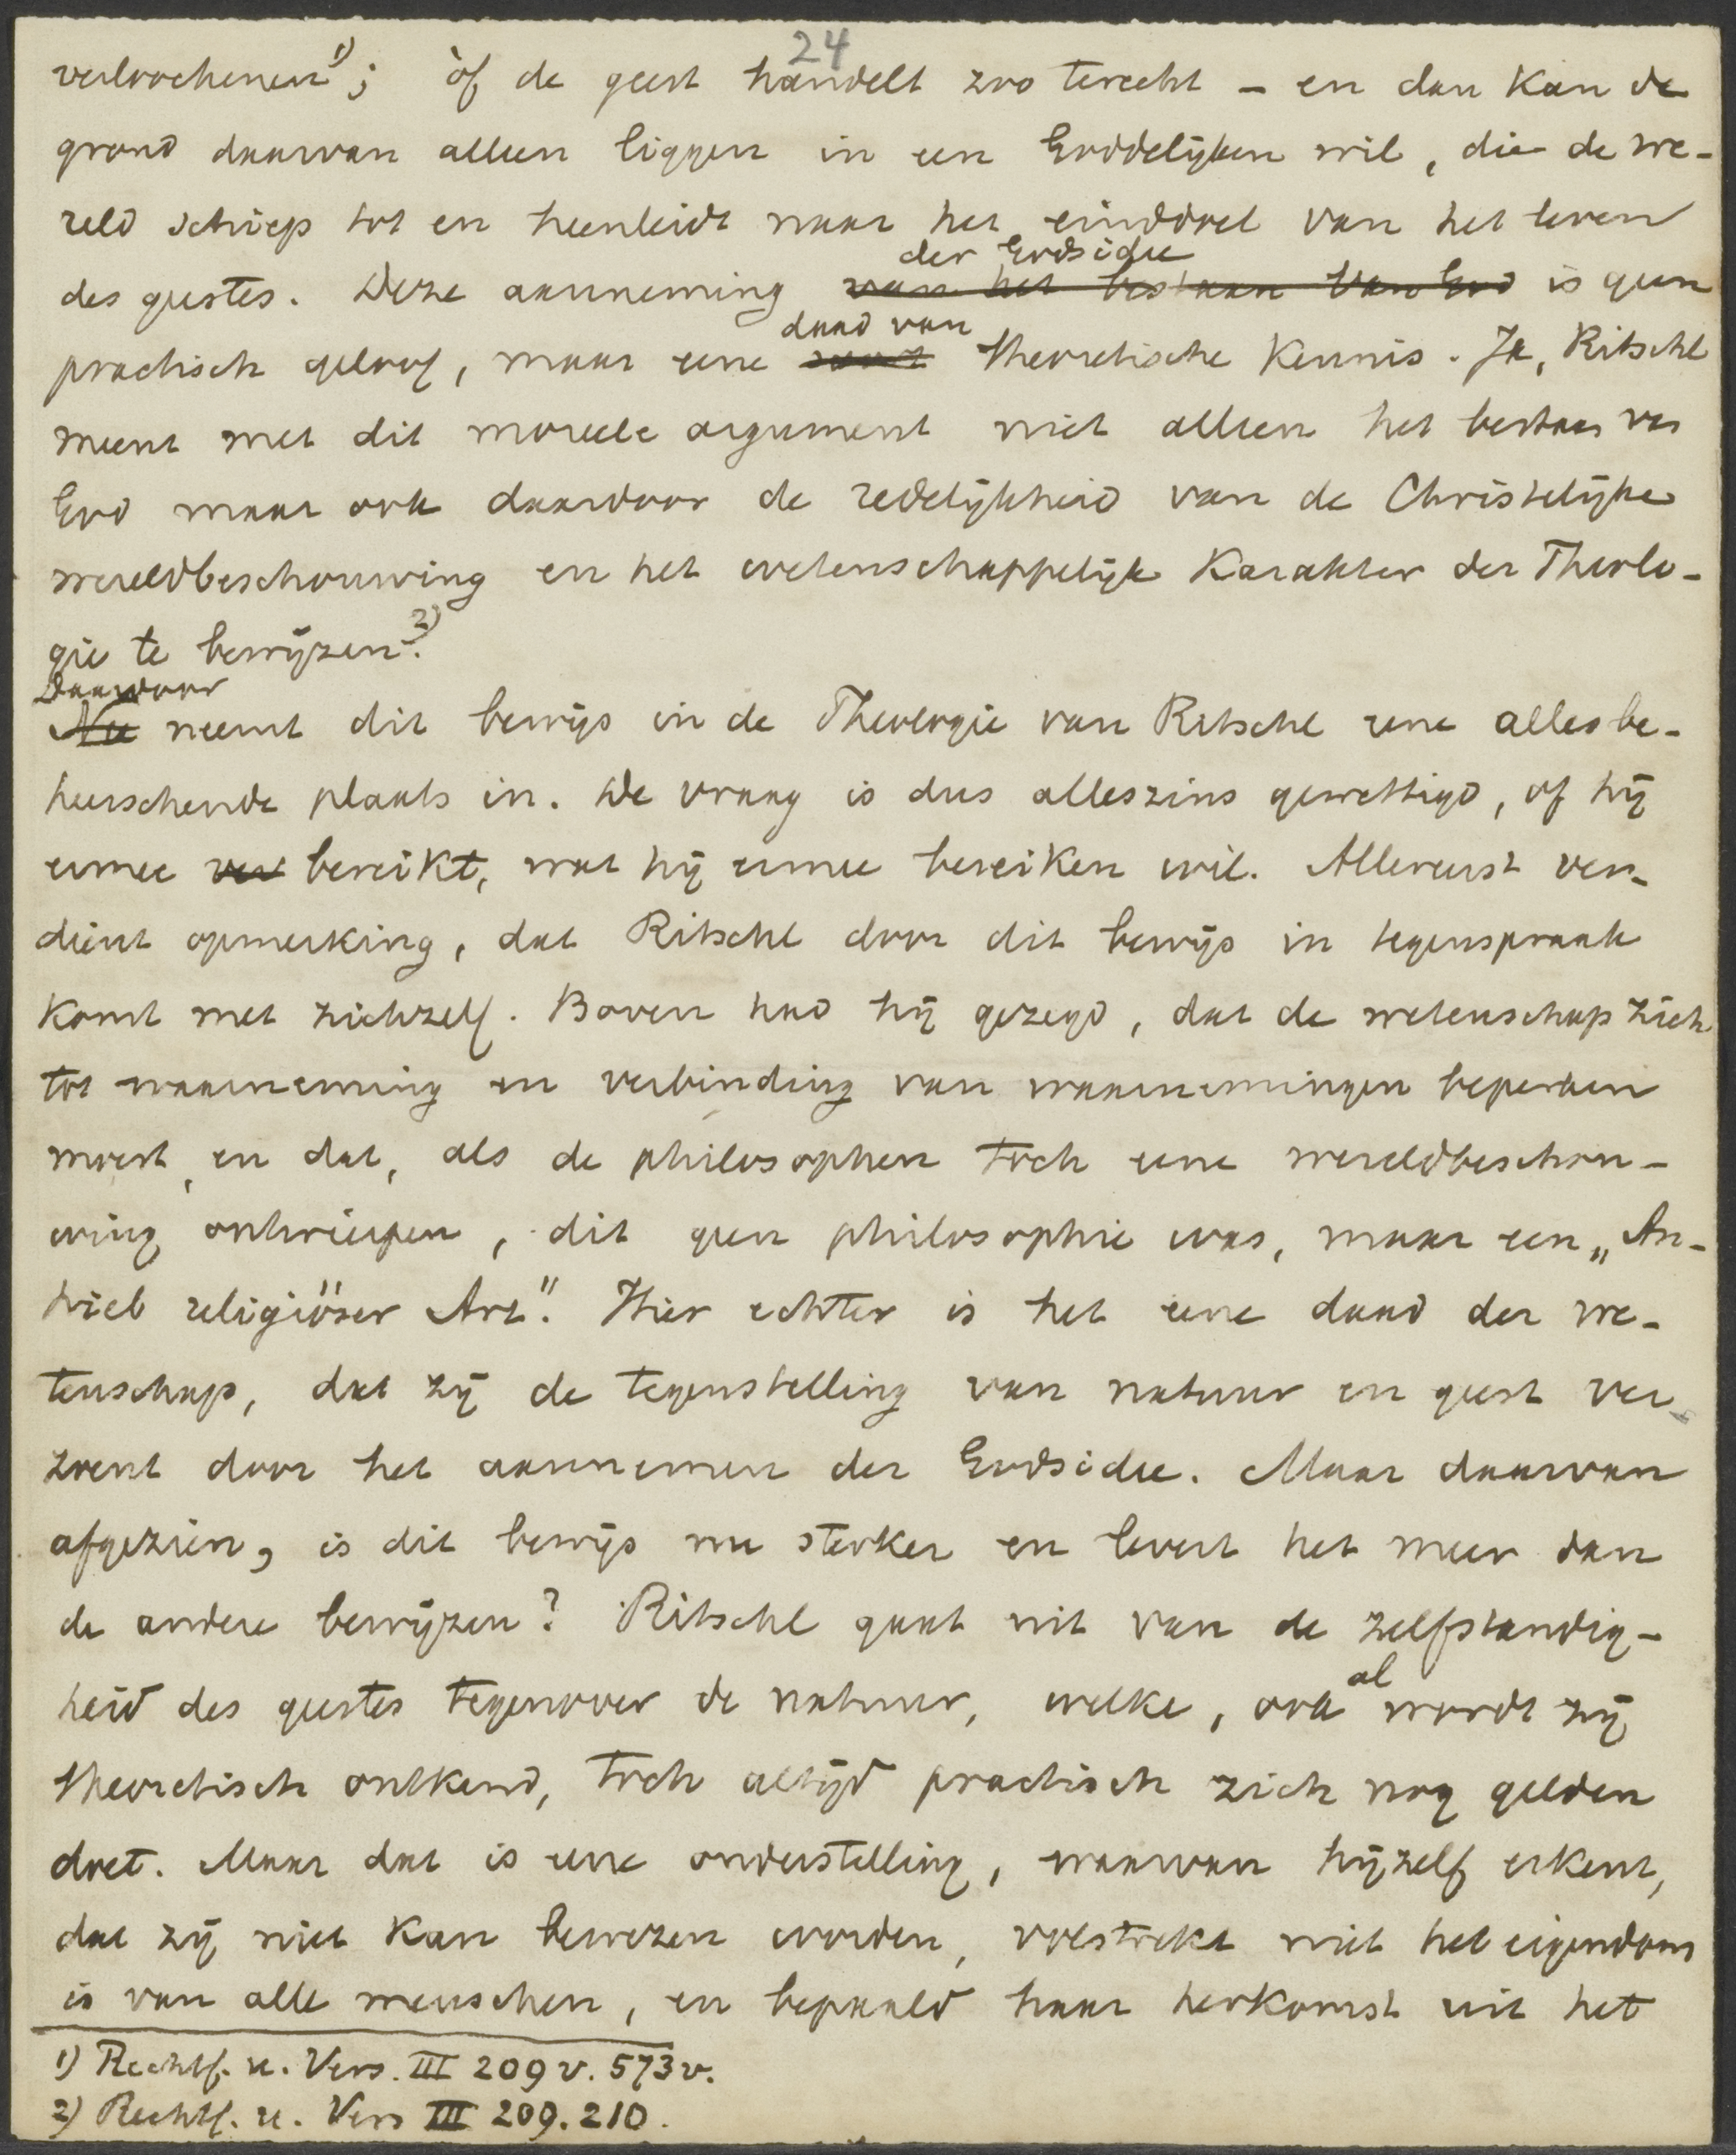 24
verloochenen¹⁾; òf de geest handelt zoo terecht – en dan kan de
grond daarvan alleen liggen in een Goddelijken wil, die de we-
reld schiep tot en heenleidt naar het einddoel van het leven
der Godsidee
des geestes. Deze aanneming van het bestaan van God is geen
daad van
practisch geloof, maar eene soort theoretische kennis. Ja, Ritschl
meent met dit moreele argument niet alleen het bestaan van
God maar ook daardoor de redelijkheid van de Christelijke
wereldbeschouwing en het wetenschappelijk karakter der Theolo-
gie te bewijzen.²⁾
Daardoor
Nu neemt dit bewijs in de Theologie van Ritschl eene allesbe-
heerschende plaats in. De vraag is dus alleszins gewettigd, of hij
ermee ver bereikt, wat hij ermee bereiken wil. Allereerst ver-
dient opmerking, dat Ritschl door dit bewijs in tegenspraak
komt met zichzelf. Boven had hij gezegd, dat de wetenschap zich
tot waarneming en verbinding van waarnemingen beperken
moest, en dat, als de philosophen toch eene wereldbeschou-
wing ontwierpen, dit geen philosophie was, maar een „An-
trieb religiöser Art". Hier echter is het eene daad der we-
tenschap, dat zij de tegenstelling van natuur en geest ver-
zoent door het aannemen der Godsidee. Maar daarvan
afgezien, is dit bewijs nu sterker en levert het meer dan
de andere bewijzen? Ritschl gaat uit van de zelfstandig-
al
heid des geestes tegenover de natuur, welke, ook wordt zij
theoretisch ontkend, toch altijd practisch zich nog gelden
doet. Maar dat is eene onderstelling, waarvan hijzelf erkent,
dat zij niet kan bewezen worden, volstrekt niet het eigendom
is van alle menschen, en bepaald haar herkomst uit het
1) Rechtf. u. Vers. III 209 v. 573 v.
2) Rechtf. u. Vers III 209. 210.